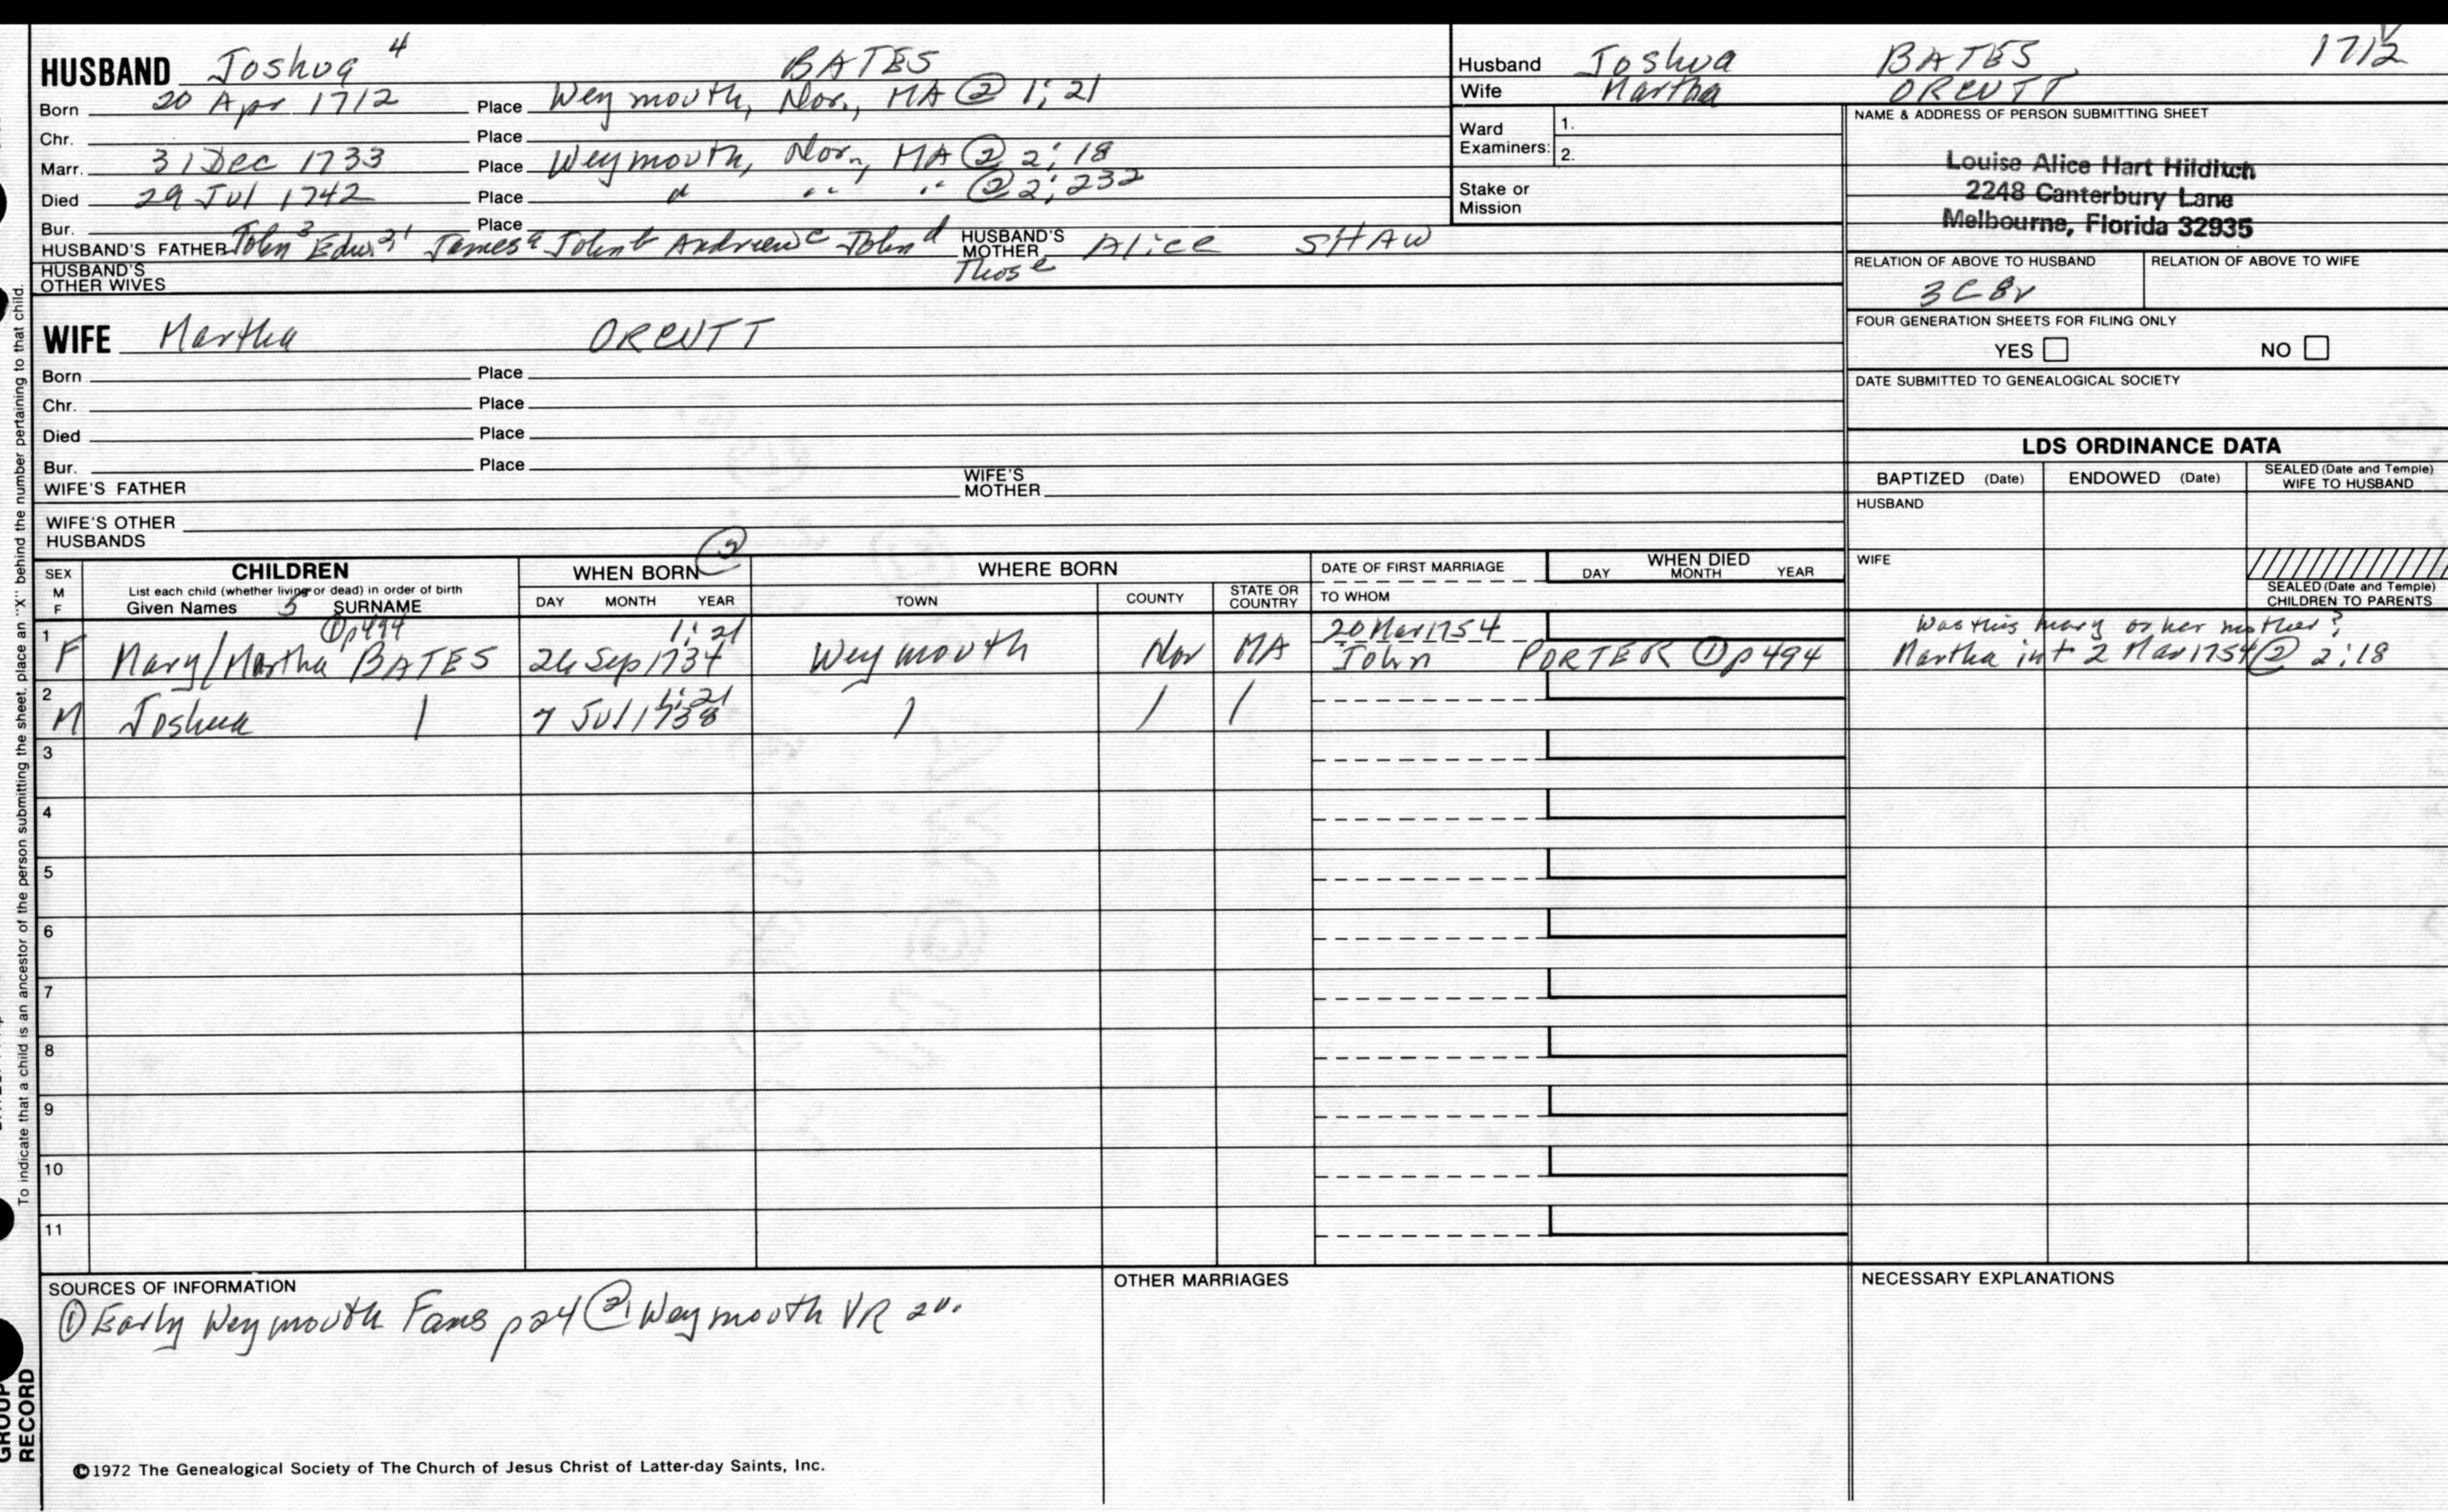 HUSBAND Joshua 4 BATES
Born 20 Apr 1712 Place Weymouth, Nor., MA @ 1; 21
Chr. Place
Marr. 31 Dec 1733 Place Weymouth, Nor., MA ② 2; 18
Died 29 Jul 1742 Place " " " ② 2; 232
Bur. Place
HUSBAND'S FATHER John 3 Edw. 2, 1 James a John b Andrew c John d HUSBAND'S MOTHER Alice SHAW
HUSBAND'S OTHER WIVES Thos e
Husband Joshua BATES 1712
Wife Martha ORCUTT
Ward Examiners: 1.
2.
Stake or Mission
NAME & ADDRESS OF PERSON SUBMITTING SHEET
Louise Alice Hart Hilditch
2248 Canterbury Lane
Melbourne, Florida 32935
RELATION OF ABOVE TO HUSBAND RELATION OF ABOVE TO WIFE
3C 8r
FOUR GENERATION SHEETS FOR FILING ONLY
YES NO
DATE SUBMITTED TO GENEALOGICAL SOCIETY
WIFE Martha ORCUTT
Born Place
Chr. Place
Died Place
Bur. Place
WIFE'S FATHER WIFE'S MOTHER
WIFE'S OTHER HUSBANDS
LDS ORDINANCE DATA
BAPTIZED (Date) ENDOWED (Date) SEALED (Date and Temple) WIFE TO HUSBAND
HUSBAND
WIFE
SEALED (Date and Temple) CHILDREN TO PARENTS
SEX M F
CHILDREN
List each child (whether living or dead) in order of birth
Given Names 5 SURNAME
WHEN BORN ②
DAY MONTH YEAR
WHERE BORN
TOWN COUNTY STATE OR COUNTRY
DATE OF FIRST MARRIAGE
TO WHOM
WHEN DIED
DAY MONTH YEAR
1 ① p494 1; 21 20 Mar 1754 Was this Mary or her mother?
F Mary/Martha BATES 26 Sep 1734 Weymouth Nor MA John PORTER ① p494 Martha int 2 Mar 1754 ② 2:18
2 1; 21
M Joshua / 7 Jul 1738 / / /
3
4
5
6
7
8
9
10
11
SOURCES OF INFORMATION
① Early Weymouth Fams p24 ② Weymouth VR 2v.
OTHER MARRIAGES
NECESSARY EXPLANATIONS
©1972 The Genealogical Society of The Church of Jesus Christ of Latter-day Saints, Inc.
To indicate that a child is an ancestor of the person submitting the sheet, place an "X" behind the number pertaining to that child.
GROUP
RECORD